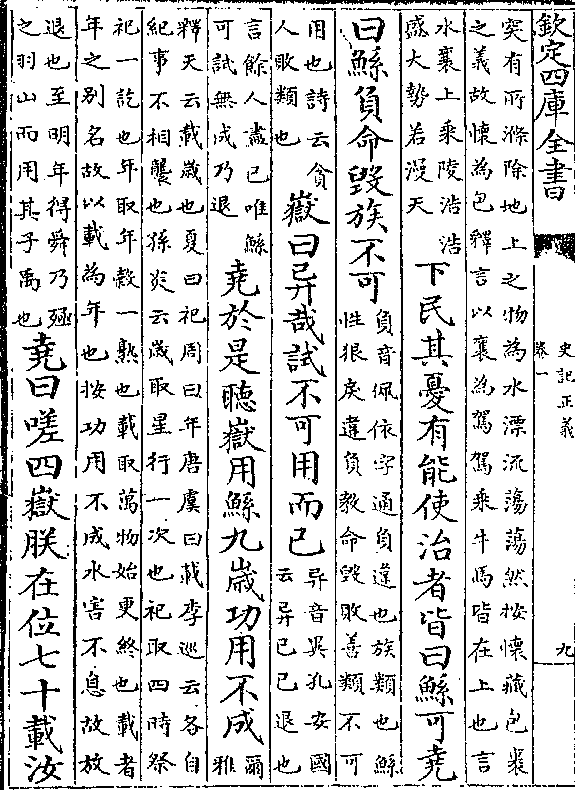 欽定四庫全書
史記正義
卷一
九
突有所滌除地上之物為水漂流蕩蕩然按懷藏包裹
之義故懷為包釋言以襄為駕駕乘牛馬皆在上也言
水襄上乘陵浩浩
盛大勢若漫天
下民其憂有能使治者皆曰鯀可堯
曰鯀負命毀族不可
負音佩依字通負違也族類也鯀
性狠戾違負教命毀敗善類不可
用也詩云貪
人敗類也
嶽曰异哉試不可用而已
异音異孔安國
云异已已退也
言餘人盡已唯鯀
可試無成乃退
堯於是聽嶽用鯀九歲功用不成
爾
雅
釋天云載歲也夏曰祀周曰年唐虞曰載李巡云各自
紀事不相襲也孫炎云歲取星行一次也祀取四時祭
祀一訖也年取年穀一熟也載取萬物始更終也載者
年之別名故以載為年也按功用不成水害不息故放
退也至明年得舜乃殛
之羽山而用其子禹也
堯曰嗟四嶽朕在位七十載汝